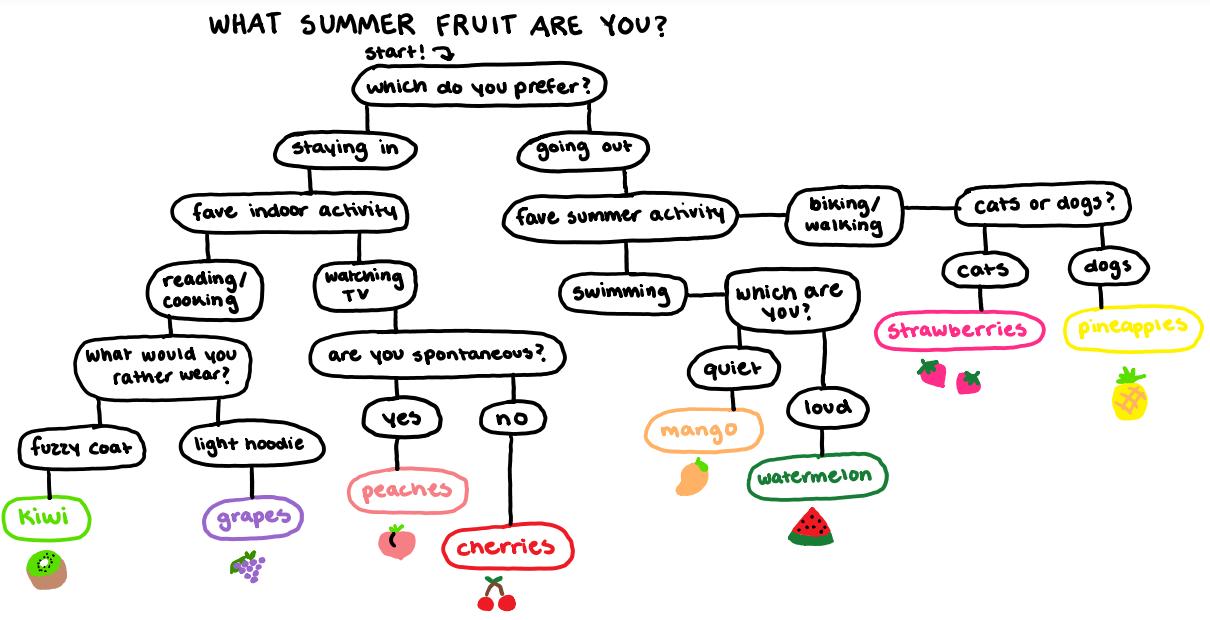 WHAT SUMMER FRUIT ARE YOU?
start!
which do you prefer?
staying in
going out
fave indoor activity
fave summer activity
biking/
walking
cats or dogs?
reading/
cooking
watching
TV
swimming
which are
you?
cats
dogs
what would you
rather wear?
are you spontaneous?
quiet
loud
strawberries
pineapples
fuzzy coat
light hoodie
yes
no
mango
watermelon
kiwi
grapes
peaches
cherries